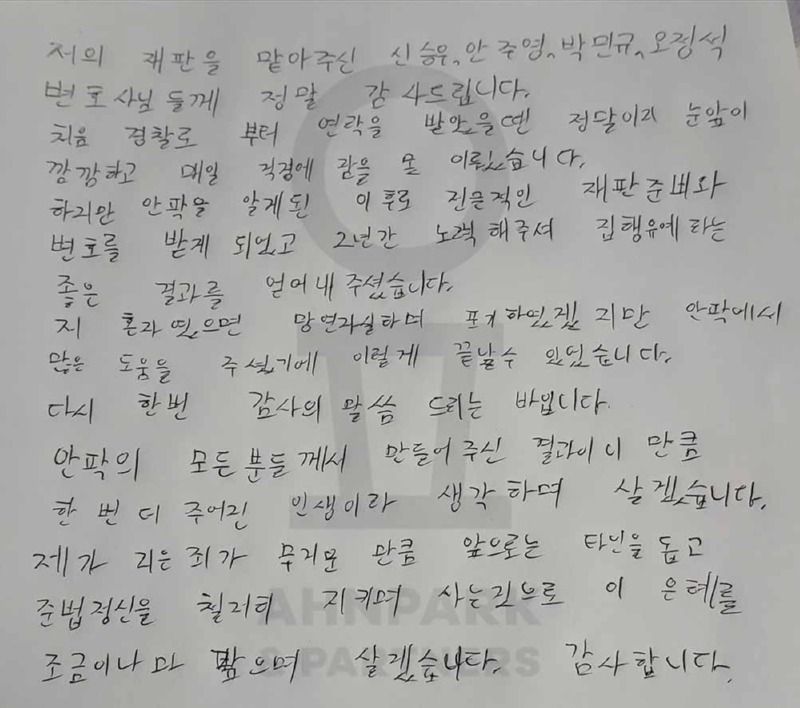 저의 재판을 맡아주신 신승우, 안주영, 박민규, 오정석
변호사님들께 정말 감사드립니다.
처음 경찰로 부터 연락을 받았을땐 정말이지 눈앞이
깜깜하고 매일 걱정에 잠을 못 이뤘습니다.
하지만 안팍을 알게된 이후로 전문적인 재판준비와
변호를 받게 되었고 2년간 노력해주셔 집행유예라는
좋은 결과를 얻어내주셨습니다.
저 혼자였으면 망연자실하며 포기하였겠지만 안팍에서
많은 도움을 주셨기에 이렇게 끝날수 있었습니다.
다시 한번 감사의 말씀 드리는 바입니다.
안팍의 모든분들께서 만들어주신 결과이니 만큼
한 번 더 주어진 인생이라 생각하며 살겠습니다.
제가 지은죄가 무거운 만큼 앞으로는 타인을 돕고
준법정신을 철저히 지키며 사는것으로 이 은혜를
AHNPARK
조금이나마 갚으며 살겠습니다. 감사합니다.
& PARTNERS